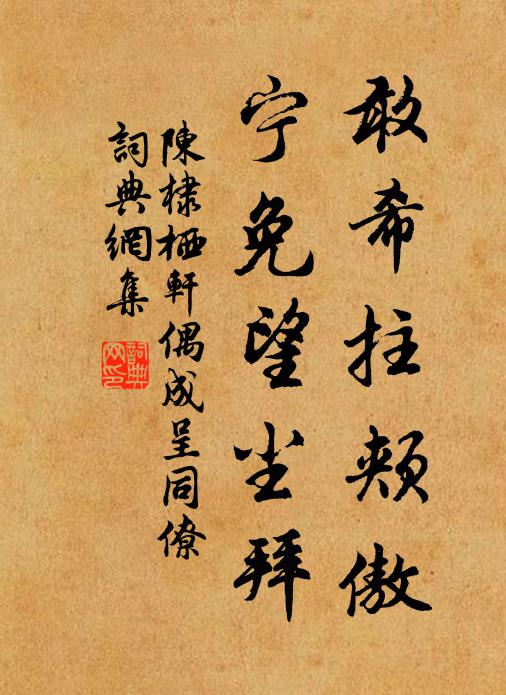 敢希拄颊傲
宁免望尘拜
陳棣栖軒偶成呈同僚
詞典網集
詞典
网印